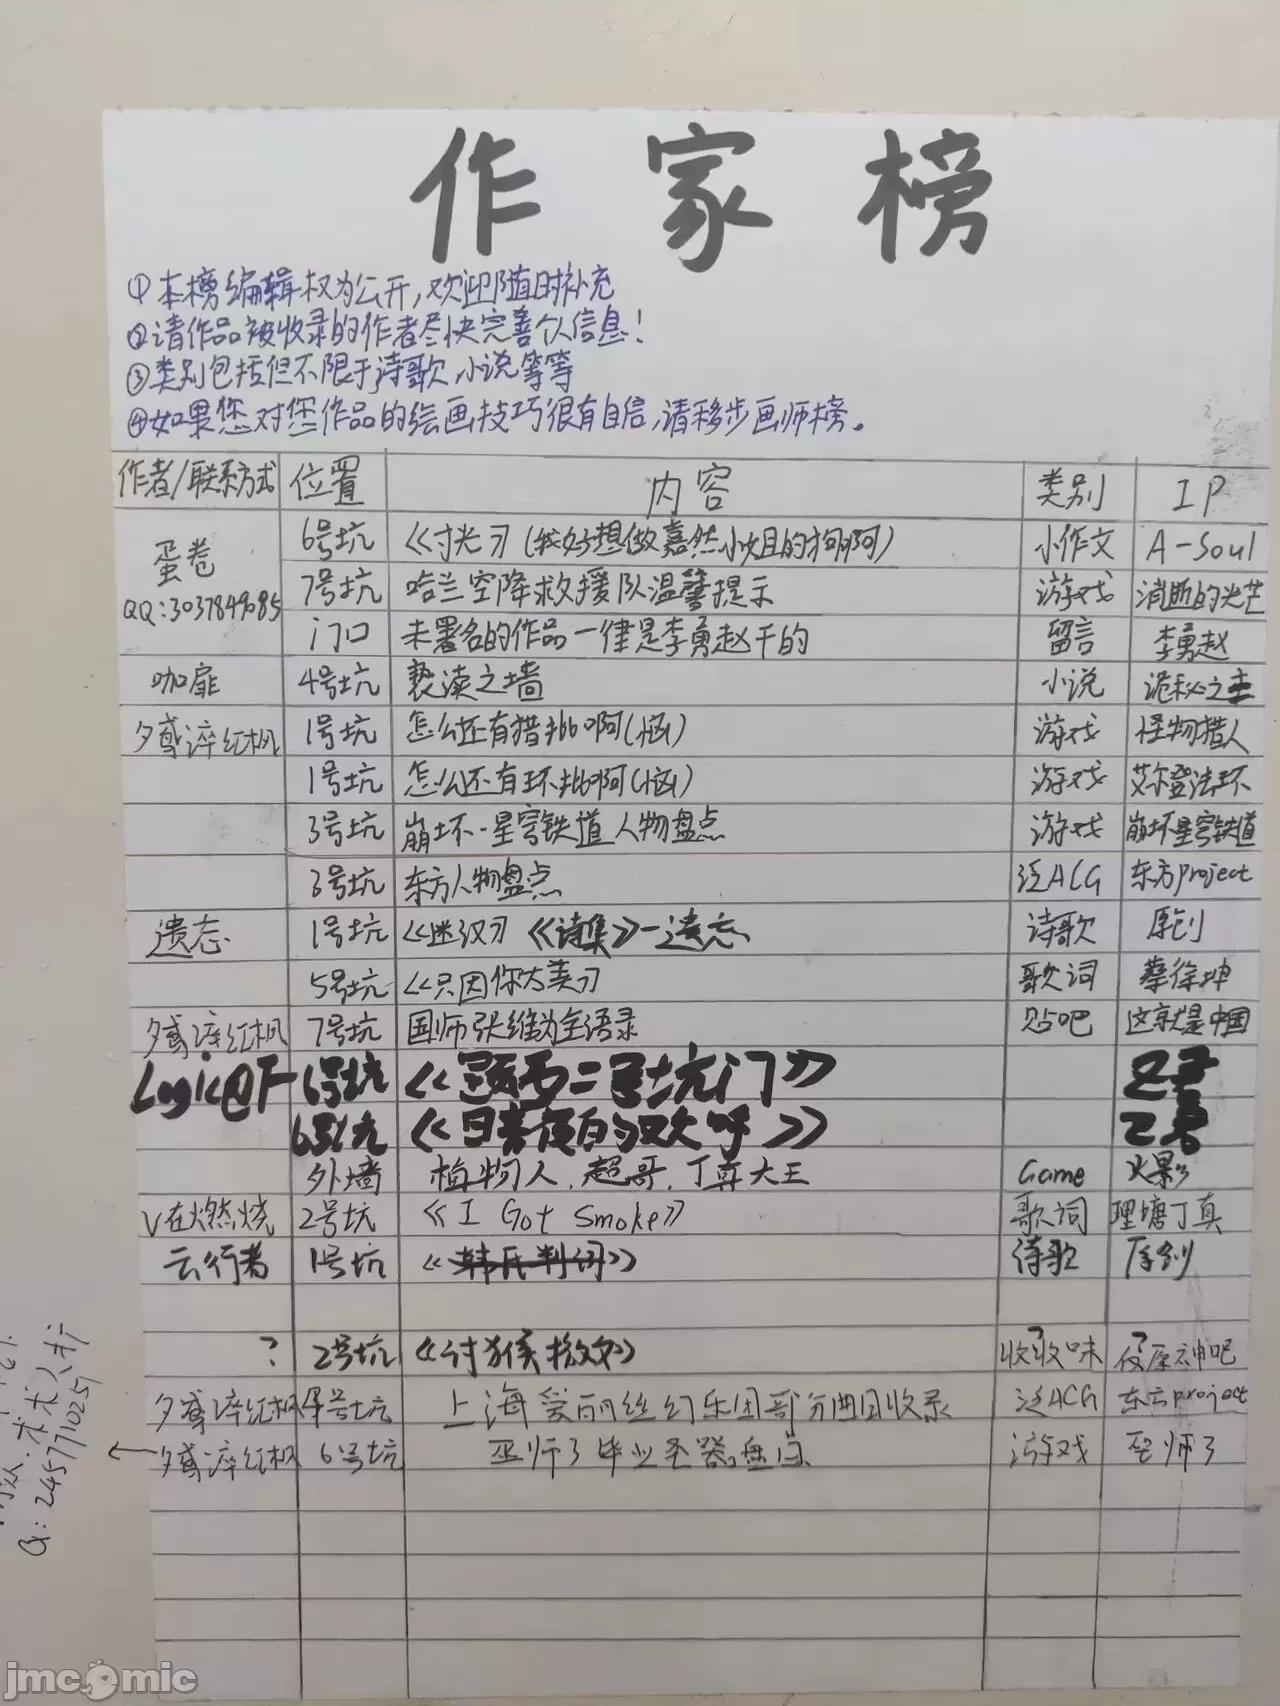 作家榜
①本榜编辑权为公开,欢迎随时补充
②请作品被收录的作者尽快完善个人信息!
③类别包括但不限于诗歌,小说等等
④如果您对您作品的绘画技巧很有自信,请移步画师榜。
作者/联系方式 位置 内容 类别 IP
蛋卷 6号坑 《寸光》(我好想做嘉然小姐的狗啊) 小作文 A-Soul
QQ:3037849085 7号坑 哈兰空降救援队温馨提示 游戏 消逝的光芒
门口 未署名的作品一律是李勇赵干的 留言 李勇赵
咖扉 4号坑 亵渎之墙 小说 诡秘之主
夕鸢淬红枫 1号坑 怎么还有猎批啊(恼) 游戏 怪物猎人
1号坑 怎么还有环批啊(恼) 游戏 艾尔登法环
3号坑 崩坏·星穹铁道人物盘点 游戏 崩坏星穹铁道
3号坑 东方人物盘点 泛ACG 东方project
遗忘 1号坑 《迷汉》《诗集》—遗忘 诗歌 原创
5号坑 《只因你太美》 歌词 蔡徐坤
夕鸢淬红枫 7号坑 国师张维为全语录 贴吧 这就是中国
Logic@F 6号坑 《题丙二号坑门》
6号坑
外墙 植物人,超哥,丁真大王 Game 火影
V在燃烧 2号坑 《I Got Smoke》 歌词 理塘丁真
云行者 1号坑 诗歌 原创
? 2号坑 《讨猴檄文》 收收味 ? 原神吧
夕鸢淬红枫 4号坑 上海爱丽丝幻乐团部分曲目收录 泛ACG 东方project
← 夕鸢淬红枫 6号坑 巫师3毕业圣器盘点 游戏 巫师3
Q: 2457710251
jmcomic